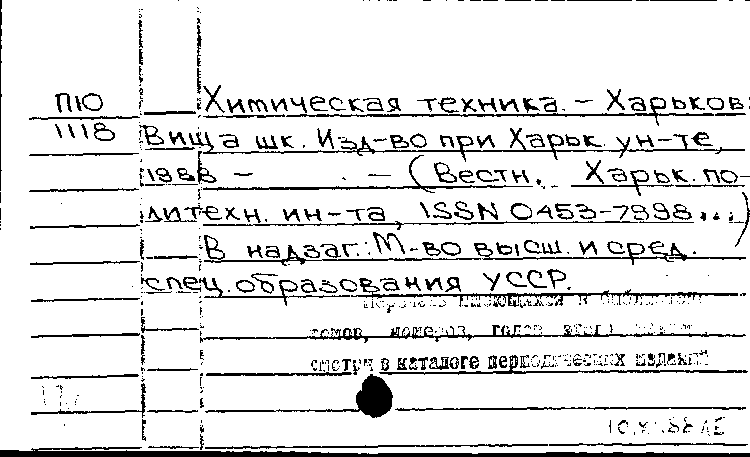 П10 Химическая техника. – Харьков:
1118 Вища шк. Изд-во при Харьк. ун-те,
1988 – . – (Вестн. Харьк. по-
литехн. ин-та, ISSN 0453-7998...)
В надзаг.: М-во высш. и сред.
спец. образования УССР.
Перечень имеющихся в библиотеке
томов, номеров, годов этого
смотри в каталоге периодических изданий